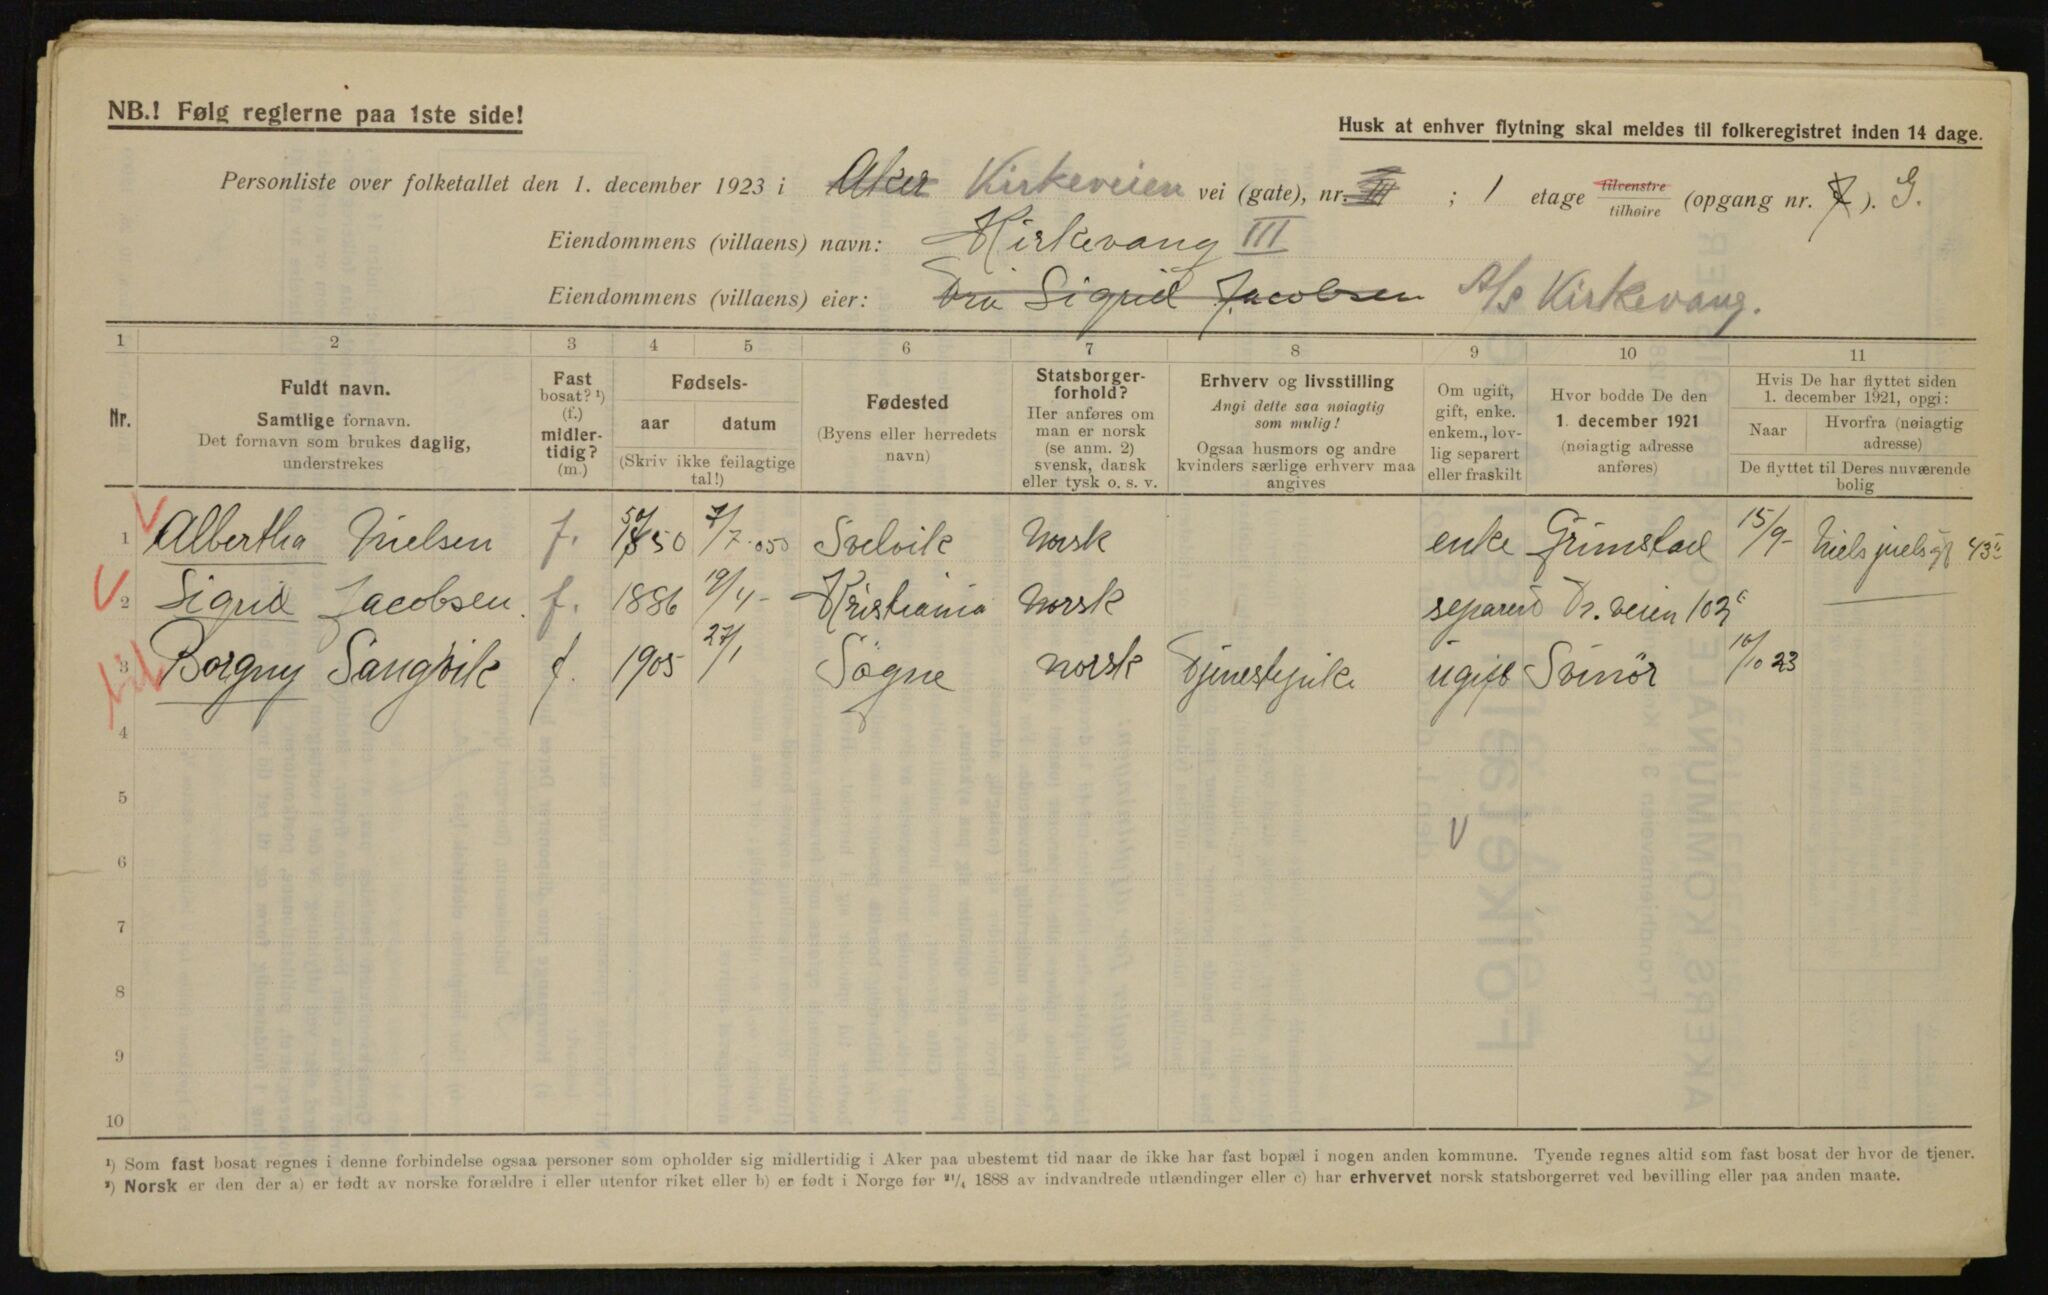 NB.! Følg reglerne paa 1ste side!
Husk at enhver flytning skal meldes til folkeregistret inden 14 dage.
Personliste over folketallet den 1. december 1923 i Aker Kirkeveien vei (gate), nr. III ; 1 etage tilvenstre tilhøire (opgang nr. 7). G.
Eiendommens (villaens) navn: Kirkevang III
Eiendommens (villaens) eier: Fru Sigrid Jacobsen A/S Kirkevang.
1 2 3 4 5 6 7 8 9 10 11
Nr.
Fuldt navn.
Samtlige fornavn.
Det fornavn som brukes daglig,
understrekes
Fast
bosat? ¹)
(f.)
midler-
tidig?
(m.)
Fødsels-
aar datum
(Skriv ikke feilagtige
tal!)
Fødested
(Byens eller herredets
navn)
Statsborger-
forhold?
Her anføres om
man er norsk
(se anm. 2)
svensk, dansk
eller tysk o. s. v.
Erhverv og livsstilling
Angi dette saa nøiagtig
som mulig!
Ogsaa husmors og andre
kvinders særlige erhverv maa
angives
Om ugift,
gift, enke.
enkem., lov-
lig separert
eller fraskilt
Hvor bodde De den
1. december 1921
(nøiagtig adresse
anføres)
Hvis De har flyttet siden
1. december 1921, opgi:
Naar
Hvorfra (nøiagtig
adresse)
De flyttet til Deres nuværende
bolig
1 Albertha Nielsen f. 1850 7/7 050 Svelvik Norsk enke Grimstad 15/9- Niels juels gt 43
2 Sigrid Jacobsen. f. 1886 19/4- Kristiania Norsk separert Dr. veien 103
3 Borgny Sangvik f. 1905 27/1 Søgne norsk Tjenestepike ugift Svinör 10/10 23
4
5
6
7
8
9
10
¹) Som fast bosat regnes i denne forbindelse ogsaa personer som opholder sig midlertidig i Aker paa ubestemt tid naar de ikke har fast bopæl i nogen anden kommune. Tyende regnes altid som fast bosat der hvor de tjener.
²) Norsk er den der a) er født av norske forældre i eller utenfor riket eller b) er født i Norge før ²¹/₄ 1888 av indvandrede utlændinger eller c) har erhvervet norsk statsborgerret ved bevilling eller paa anden maate.